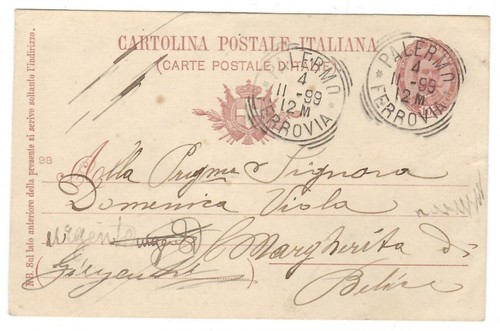 CARTOLINA POSTALE ITALIANA
(CARTE POSTALE D'ITALIE)
PALERMO
4
11-99
12 M
FERROVIA
PALERMO
4
11-99
12 M
FERROVIA
NB. Sul lato anteriore della presente si scrive soltanto l'indirizzo.
98
Alla Pregma Signora
Domenica Viola
urgente
S. Margherita di
(Girgenti)
Belice